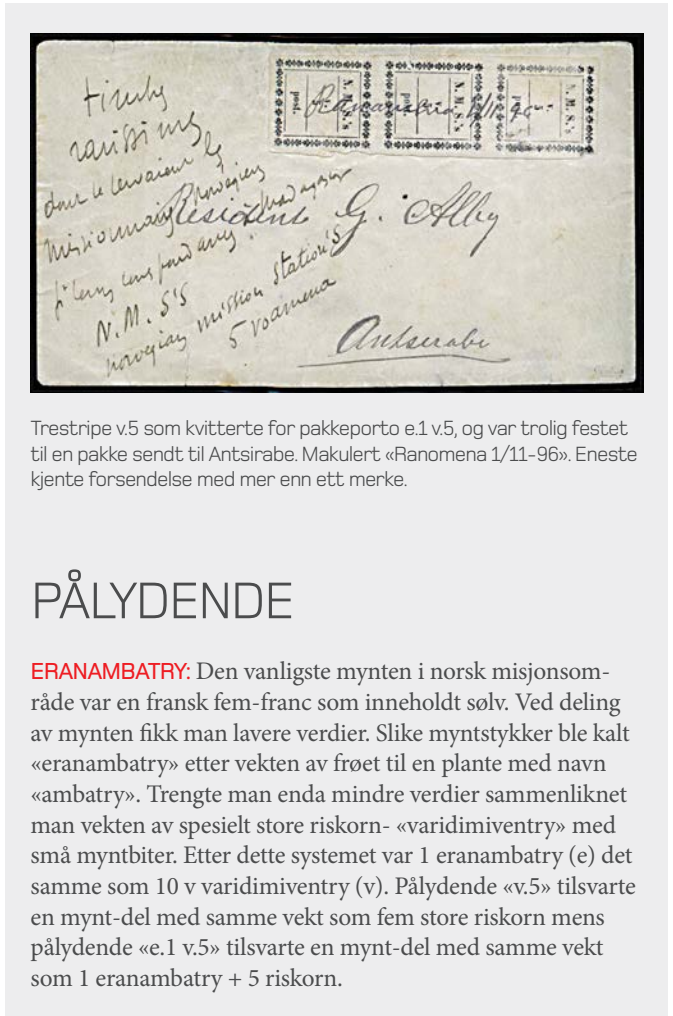 N.M.S.'s
post.
N.M.S.'s
post.
N.M.S.'s
Ranomena 1/11 96
timbre
rarissime
dont se servaient les
missionnaires norvégiens
Madagascar
N. M. S'S
norwegian mission station's
5 voamena
Resident G. Alby
Antserabe
Trestripe v.5 som kvitterte for pakkeporto e.1 v.5, og var trolig festet
til en pakke sendt til Antsirabe. Makulert «Ranomena 1/11-96». Eneste
kjente forsendelse med mer enn ett merke.
PÅLYDENDE
ERANAMBATRY: Den vanligste mynten i norsk misjonsom-
råde var en fransk fem-franc som inneholdt sølv. Ved deling
av mynten fikk man lavere verdier. Slike myntstykker ble kalt
«eranambatry» etter vekten av frøet til en plante med navn
«ambatry». Trengte man enda mindre verdier sammenliknet
man vekten av spesielt store riskorn- «varidimiventry» med
små myntbiter. Etter dette systemet var 1 eranambatry (e) det
samme som 10 v varidimiventry (v). Pålydende «v.5» tilsvarte
en mynt-del med samme vekt som fem store riskorn mens
pålydende «e.1 v.5» tilsvarte en mynt-del med samme vekt
som 1 eranambatry + 5 riskorn.